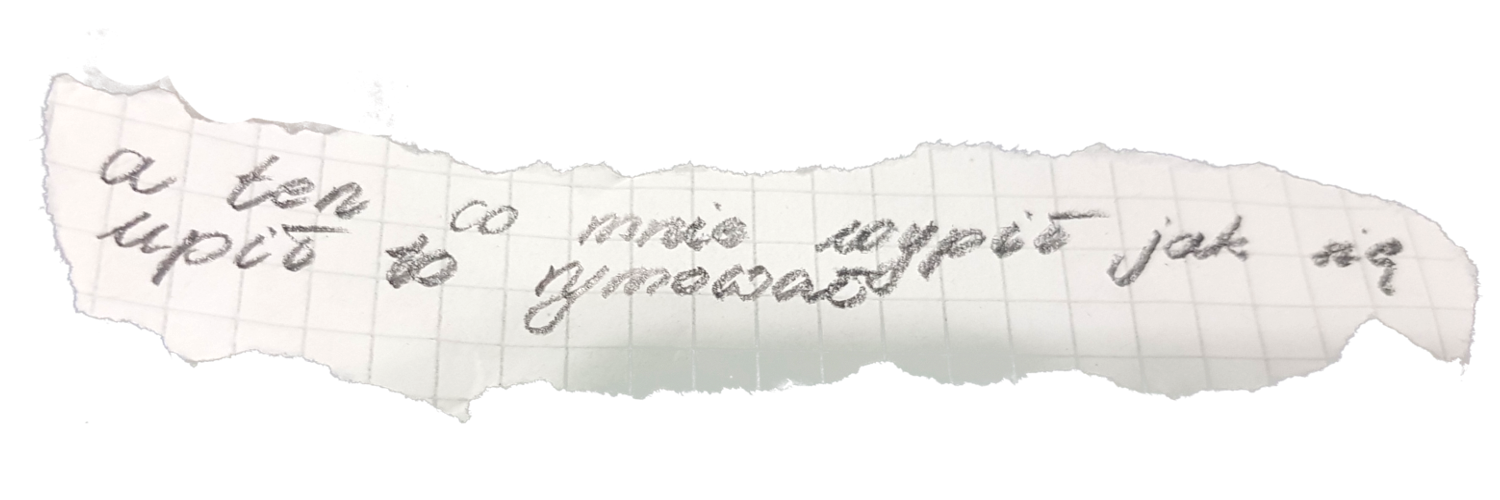 a ten co mnie wypił jak się
upił to rymował